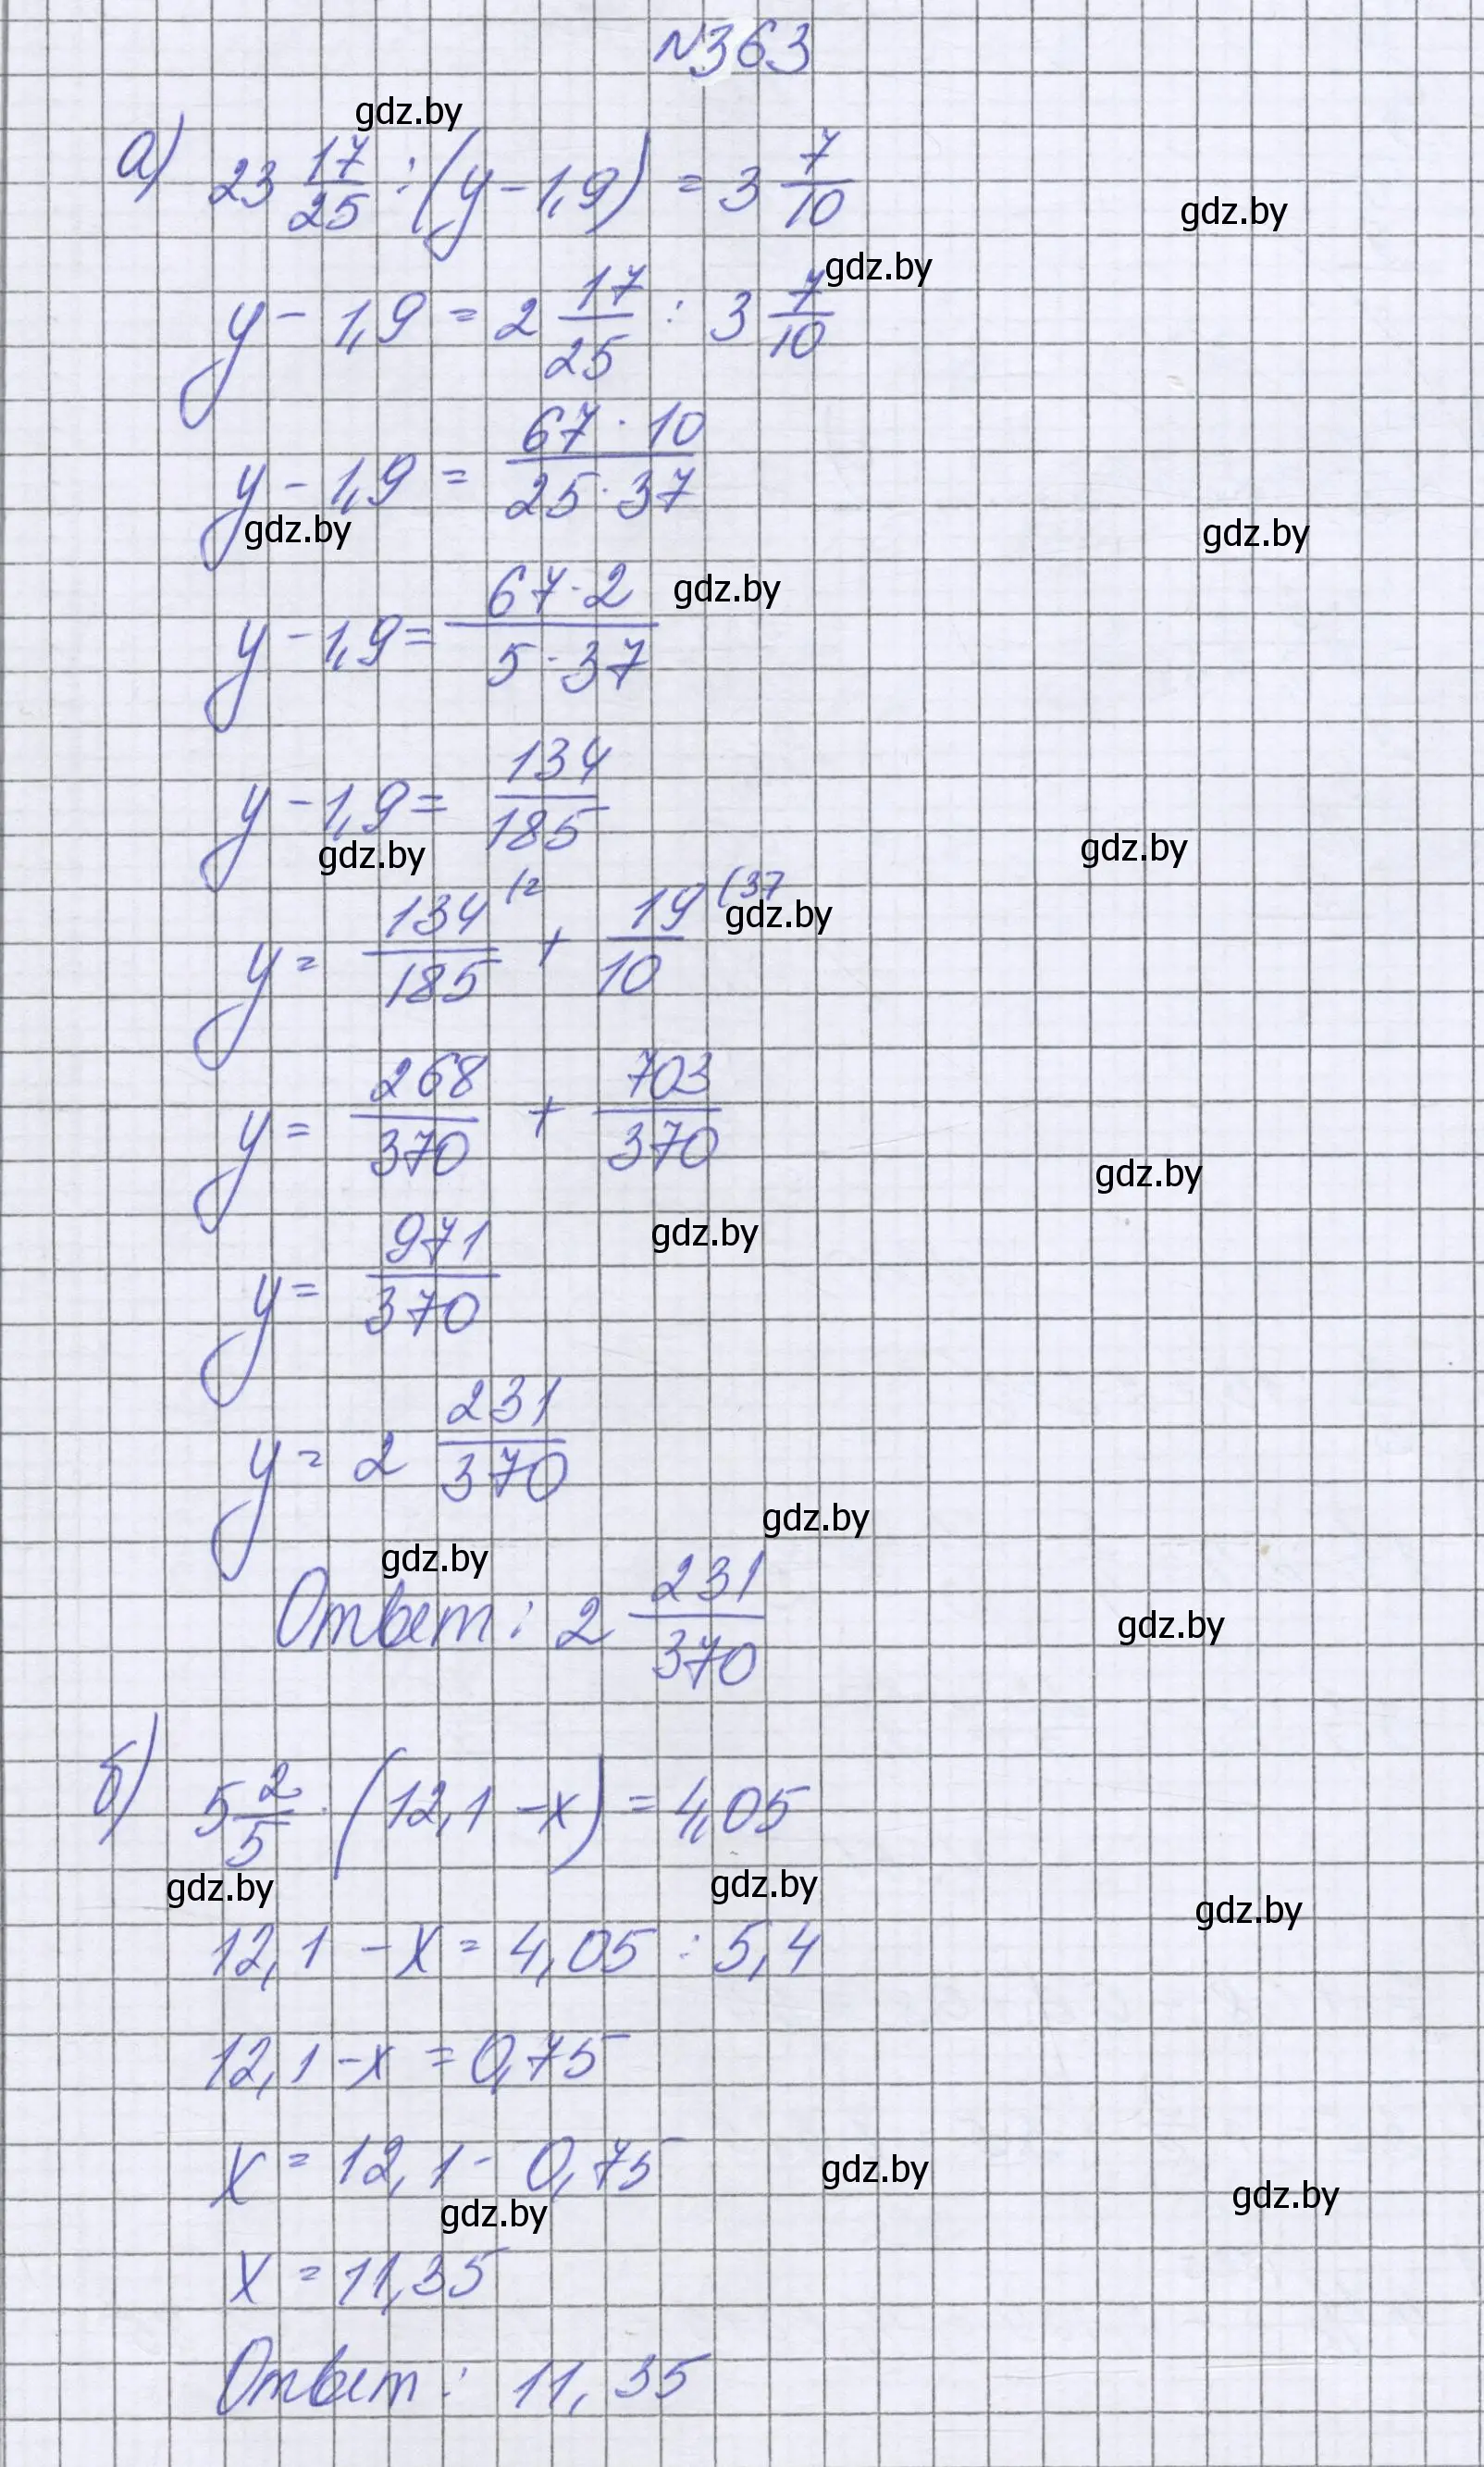 №363
gdz.by
а) 23 17/25 : (y - 1,9) = 3 7/10
gdz.by
gdz.by
y - 1,9 = 2 17/25 : 3 7/10
y - 1,9 = 67 · 10 / 25 · 37
gdz.by gdz.by
y - 1,9 = 67 · 2 / 5 · 37 gdz.by
y - 1,9 = 134/185
gdz.by gdz.by
y = 134/185 (2 + 19/10 (37
gdz.by
y = 268/370 + 703/370
gdz.by
gdz.by
y = 971/370
y = 2 231/370
gdz.by
gdz.by
Ответ: 2 231/370
gdz.by
б) 5 2/5 · (12,1 - x) = 4,05
gdz.by gdz.by gdz.by
12,1 - x = 4,05 : 5,4
12,1 - x = 0,75
x = 12,1 - 0,75
gdz.by gdz.by gdz.by
x = 11,35
Ответ: 11,35